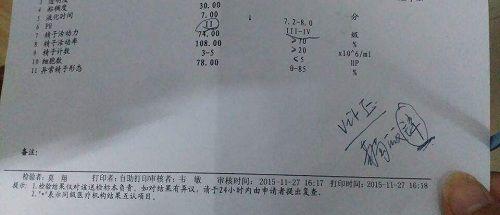 4 粘稠度
5 液化时间 30.00 分
6 PH 7.00 7.2-8.0
7 精子活动力 II III-IV 级
8 精子活动率 74.00 ≥70 %
9 精子计数 108.00 ≥20 x10^6/ml
10 细胞数 3-5 ≤5 HP
11 异常精子形态 78.00 0-85 %
Vit E
备注:
检验者: 莫 翔 打印者: 自助打印 审核者: 韦 敏 审核时间: 2015-11-27 16:17 打印时间: 2015-11-27 16:18
提示: 1.检验结果仅对该送检标本负责,如对结果有异议,请于24小时内由申请者提出复查。
2."*"表示同级医疗机构结果互认项目。